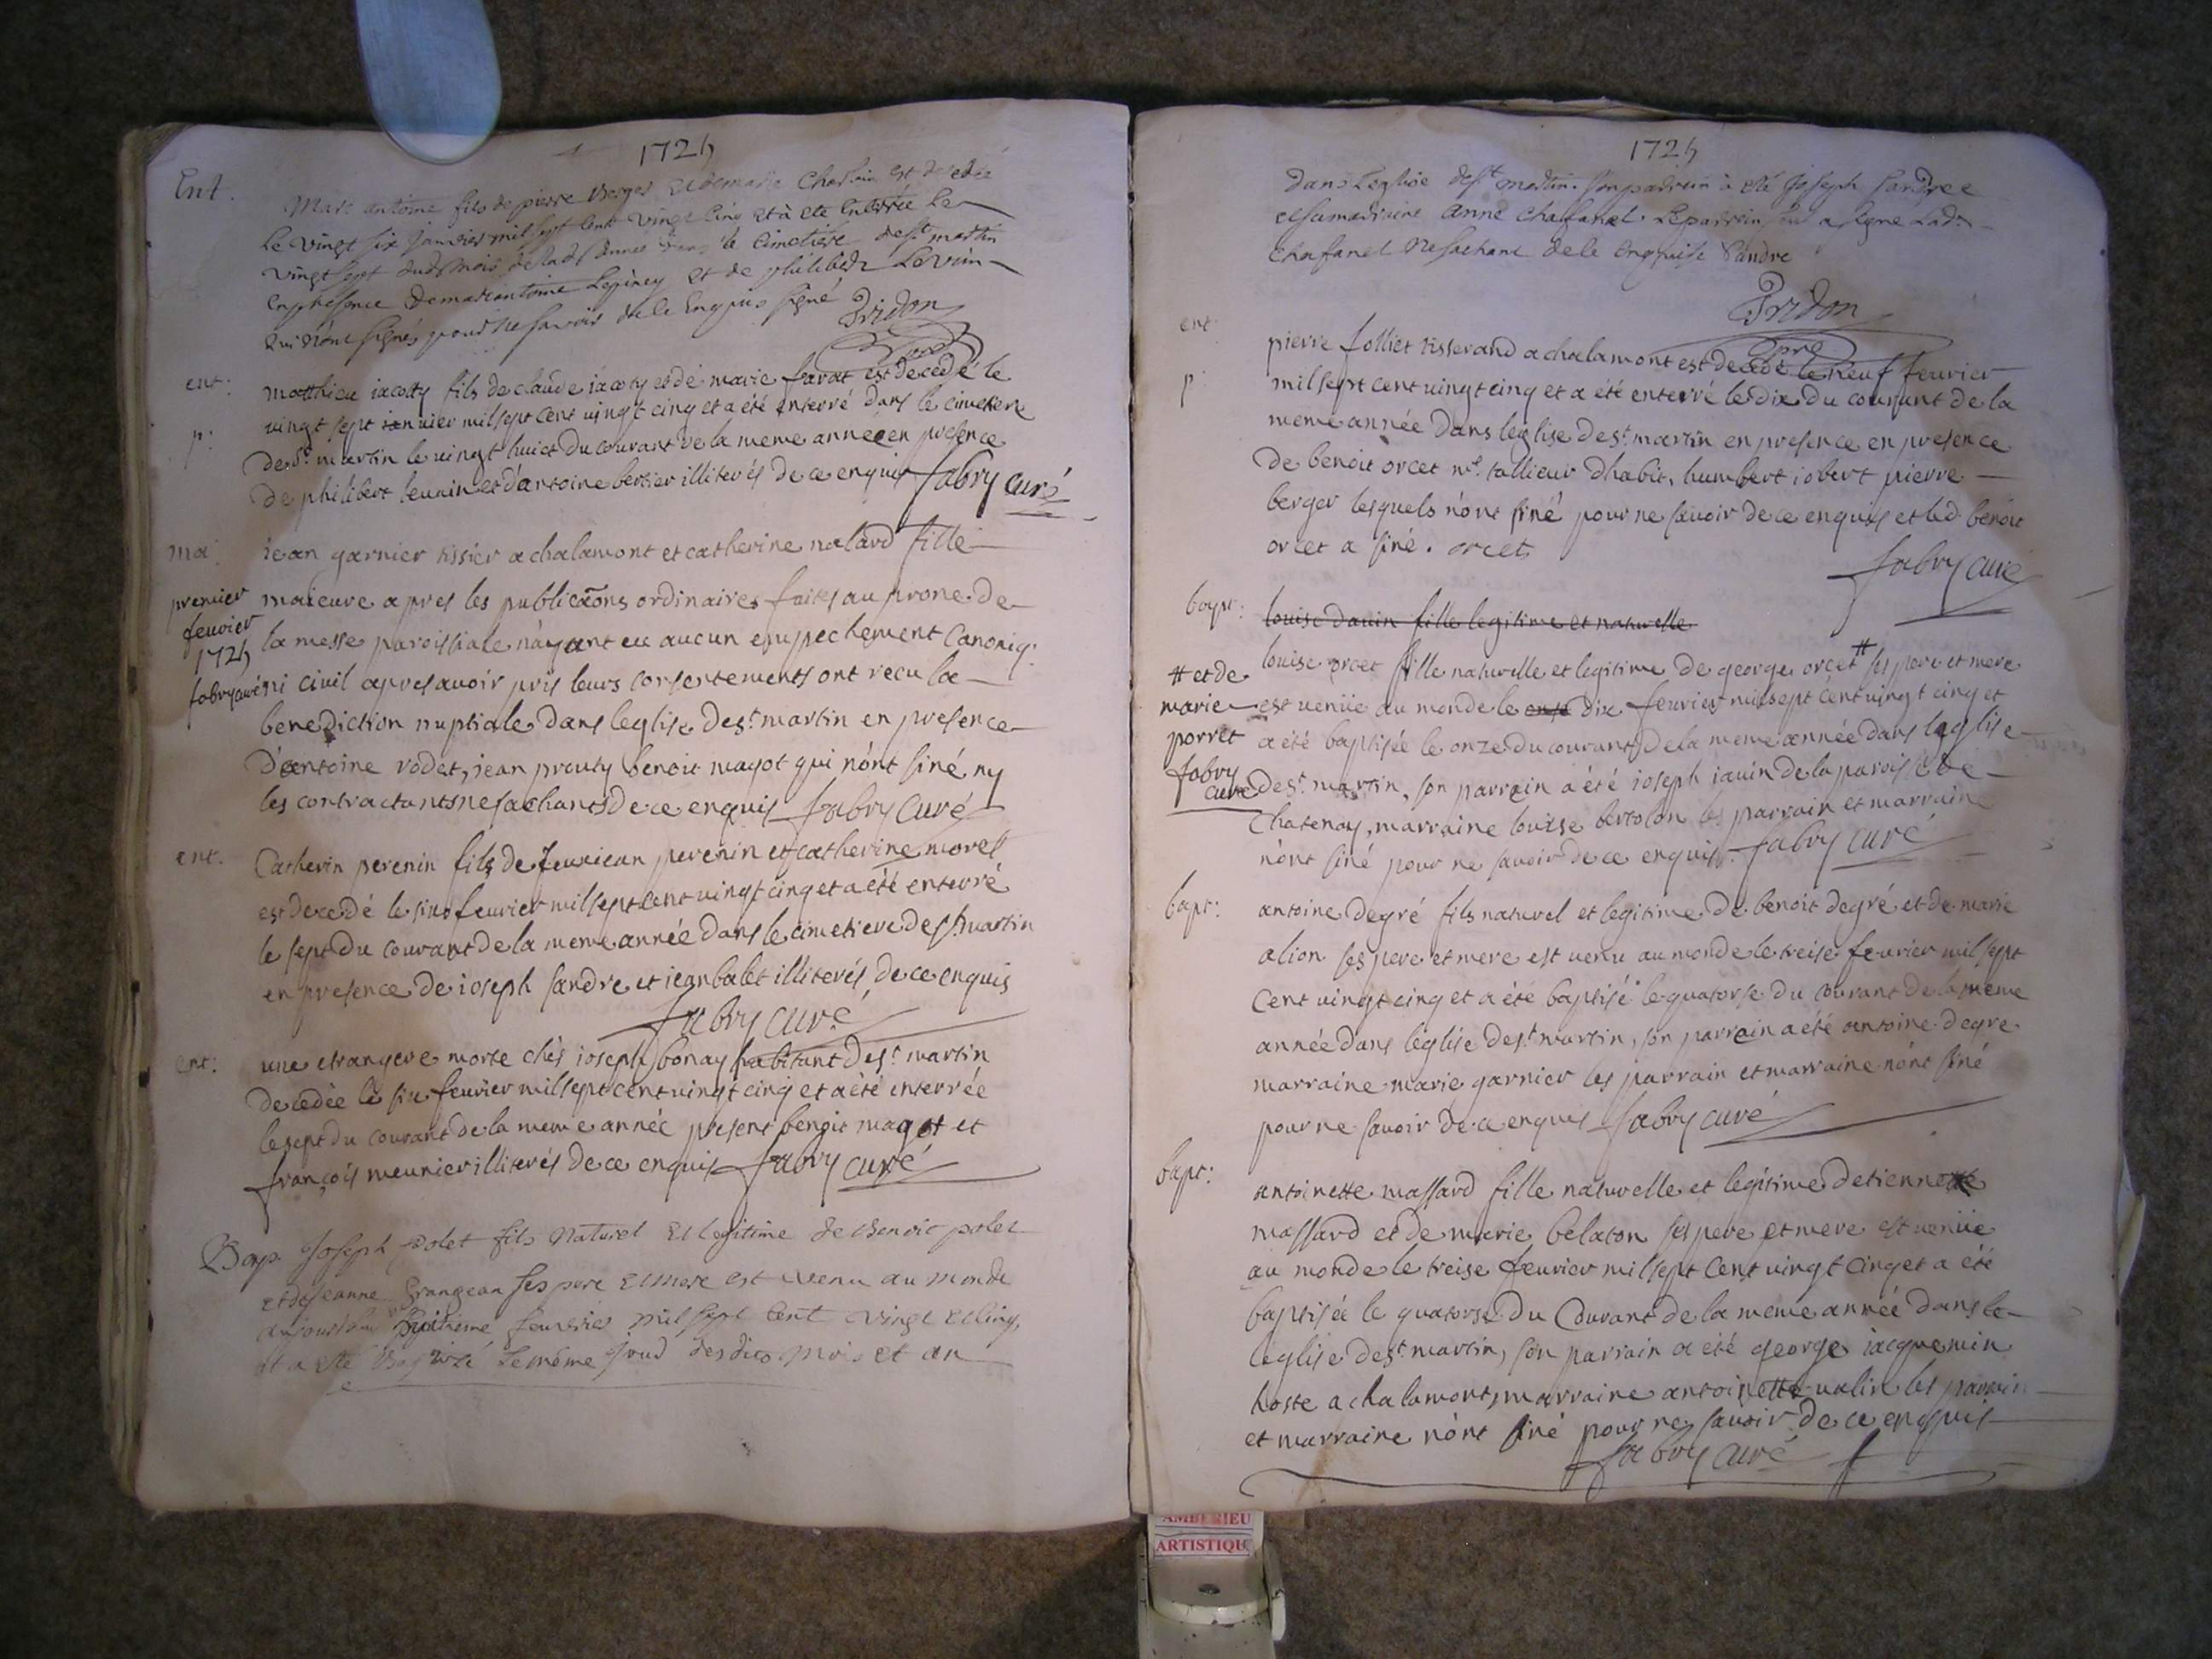 1725
Ent.
Marc antoine fils de pierre Berger et de marie est decedé
le vingt six janvier mil sept cent vingt cinq et à eté enterrée le
vingt sept dud mois de lad année dans le cimetiere de st martin
en presence de marc antoine Lepiney et de philibert Levrin
qui n'ont signés pour ne savoir de le enquis signé Pridon
ent:
p:
matthieu iacoty fils de claude iacoty et de marie farat est decedé le
vingt sept ianuier mil sept cent uingt cinq et a été enterré dans le cimetiere
de st martin le uingt huict du courant de la meme année en presence
de philibert leurin et d'antoine bertier illiterés de ce enquis fabry curé
ma:
premier
feurier
1725
fabry curé
iean garnier tissier a chalamont et catherine nalard fille
maieure apres les publicãons ordinaires faites au prone de
la messe paroissiale n'ayant eu aucun empechement Canoniq:
ni civil apres avoir pris leurs consentements ont receu la
benediction nuptiale dans leglise de st martin en presence
d'antoine rodet, iean prouty benoit magot qui n'ont siné ny
les contractants ne sachants de ce enquis fabry curé
ent.
Catherin perenin fils de feu iean perenin et catherine morel
est decedé le six feurier mil sept cent uingt cinq et a été enterré
le sept du courant de la meme année dans le cimetiere de st martin
en presence de ioseph sandre et iean balet illiterés de ce enquis
fabry curé
ent:
une etrangere morte chés ioseph bonay habitant de st martin
decedée le six feurier mil sept cent uingt cinq et a été enterrée
le sept du courant de la meme année present benoit magot et
françois meunier illiterés de ce enquis fabry curé
Bap. Joseph polet fils naturel et legitime de Benoit polet
et de jeanne Grangean ses pere et mere est venu au monde
aujourdhui huitieme feuvrier mil sept cent vingt et cinq,
et a eté Baptizé le même jour desdits mois et an
1725
dans L'eglise de st martin. son padrain à eté Joseph Sandre
et sa madraine anne chafanel. Le parrein a signe Lad.
chafanel ne sachant de le enquise Sandre
Pridon
pre
ent:
p:
pierre folliet tisserand a chalamont est decedé le neuf feurier
mil sept cent uingt cinq et a été enterré le dix du courant de la
meme année dans leglise de st martin en presence en presence
de benoit orcet me tallieur dhabit, humbert iobert pierre
berger lesquels n'ont siné pour ne sauoir de ce enquis et led benoit
orcet a siné. orcet
fabry curé
bapt:
louise dauin fille legitime et naturelle
louise orcet fille naturelle et legitime de george orcet # ses pere et mere
# et de
marie
porret
fabry
curé
est uenüe au monde le onse dix feurier mil sept cent uingt cinq et
a été baptisée le onze du courant de la meme année dans leglise
de st martin, son parrain a été ioseph iauin de la paroisse de
Chatenay, marraine louise bertolon les parrain et marraine
n'ont siné pour ne sauoir de ce enquis. fabry curé
bapt:
antoine degré fils naturel et legitime de benoit degré et de marie
alion ses pere et mere est uenu au monde le treise feurier mil sept
cent uingt cinq et a été baptisé le quatorse du courant de la meme
année dans leglise de st martin, son parrain a été antoine degre
marraine marie garnier les parrain et marraine n'ont siné
pour ne sauoir de ce enquis fabry curé
bapt:
antoinette massard fille naturelle et legitime detienne
massard et de marie belaton ses pere et mere est uenüe
au monde le treise feurier mil sept cent uingt cinq et a été
baptisée le quatorse du courant de la meme année dans le
leglise de st martin, son parrain a été george iacquemin
hoste a chalamont, marraine antoinette ualin les parrain
et marraine n'ont siné pour ne sauoir de ce enquis
fabry curé
AMBERIEU
ARTISTIQU